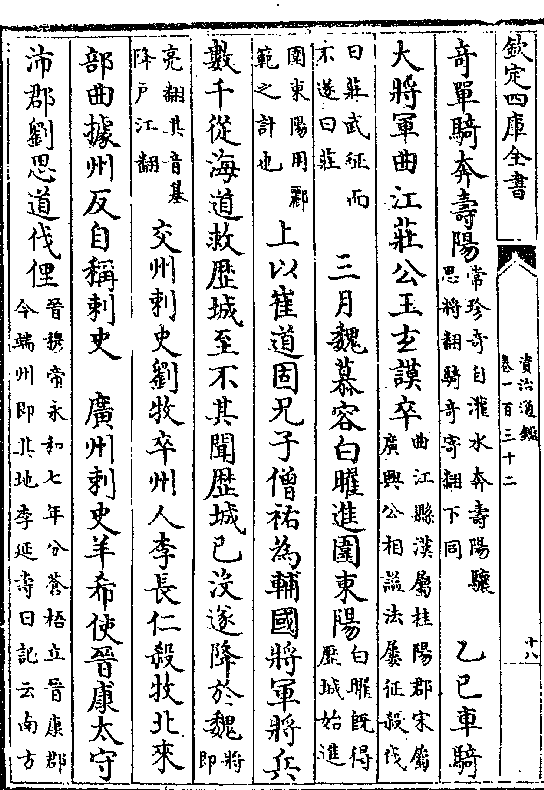 欽定四庫全書
資治通鑑
卷一百三十二
十八
奇單騎奔壽陽常珍奇自灌水奔壽陽驤思將翻騎奇寄翻下同 乙巳車騎
大將軍曲江莊公王玄謨卒曲江縣漢屬桂陽郡宋屬廣興公相諡法屢征殺伐
曰莊武征而不遂曰莊 三月魏慕容白曜進圍東陽白曜既得歷城始進
圍東陽用酈範之計也 上以崔道固兄子僧祐為輔國將軍將兵
數千從海道救歷城至不其聞歷城已没遂降於魏將即
亮翻其音基降户江翻 交州刺史劉牧卒州人李長仁殺牧北來
部曲據州反自稱刺史 廣州刺史羊希使晉康太守
沛郡劉思道伐俚晉穆帝永和七年分蒼梧立晉康郡今端州即其地李延壽曰記云南方